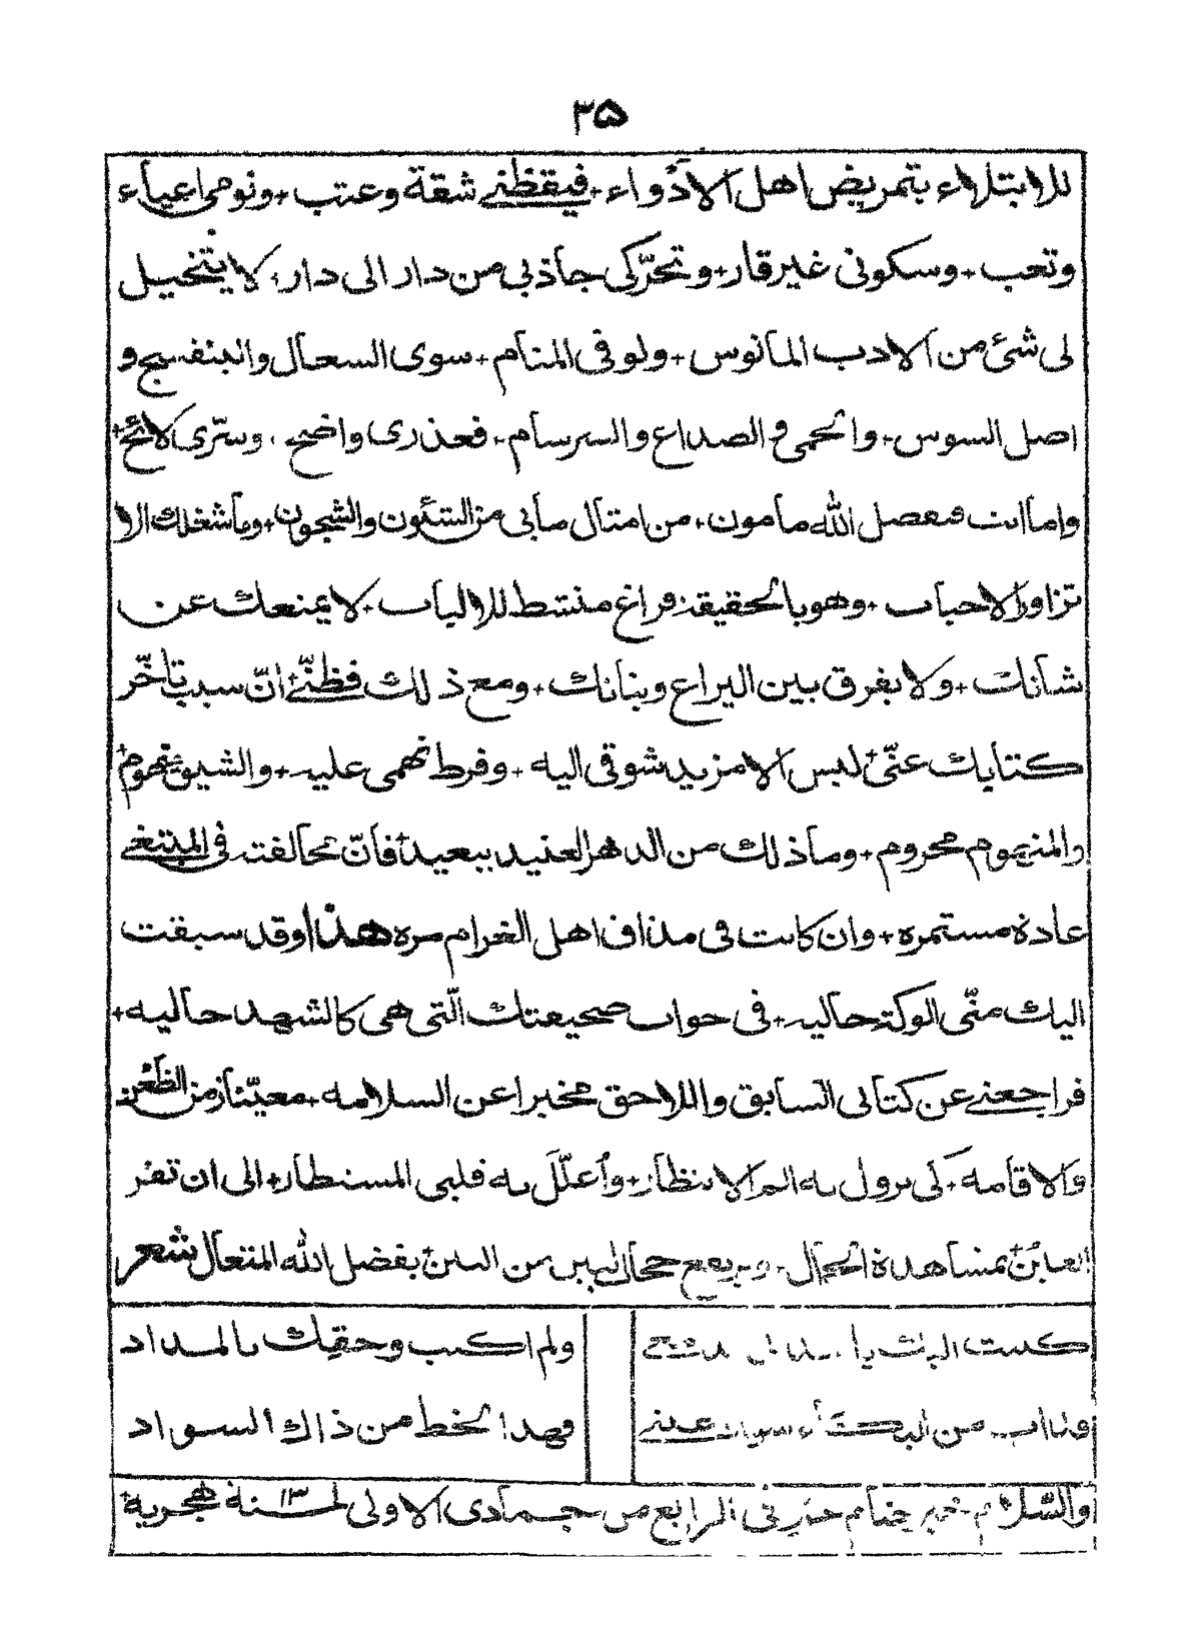 ۳۵
للابتلاء بتمريض اهل الادواء + فيقظني شقة وعتب + ونومي اعياء
وتعب + وسكونی غير قار + وتحرّكی جاذبی من دار الى دار + لا يتخيل
لی شئ من الادب المانوس + ولو فی المنام + سوی السعال والبنفسج و
اصل السوس + والحمی والصداع والسرسام + فعذری واضح + وسرّی لائح +
واما انت فبفضل الله مامون + من امثال مابی من الشئون والشجون + وما شغلك الا
تزاور الاحباب + وهو بالحقيقة فراغ منشط للالباب + لا يمنعك عن
شانك + ولا يفرق بين اليراع وبنانك + ومع ذلك فظنّی انّ سبب تاخّر
كتابك عنّی ليس الا مزيد شوقی اليه + وفرط نهمی عليه + والشيق مهموم +
والمنهوم محروم + وما ذلك من الدهر العنيد ببعيد + فانّ مخالفته فی المبتغی
عادة مستمره + وان كانت فی مذاق اهل الغرام مره هذا وقد سبقت
اليك منّی الوكة حاليه + فی جواب صحيفتك الّتی هی كالشهد حاليه +
فراجعنی عن كتابی السابق واللاحق مخبرا عن السلامه + معيّنا زمن الظعن
والاقامه + لكی يزول به الم الانتظار + وأعلّل به قلبی المستطار + الى ان تقر
العين بمشاهدة الجمال + ويرفع حجاب البين من البين بفضل الله المتعال شعر
كتبت اليك يا
ولم اكتب وحقك بالمداد
وذاب من البكاء سواد عينی
فهذا الخط من ذاك السواد
والسّلام خير ختام حرر فی الرابع من جمادی الاولی لسنة ۱۳ هجرية +